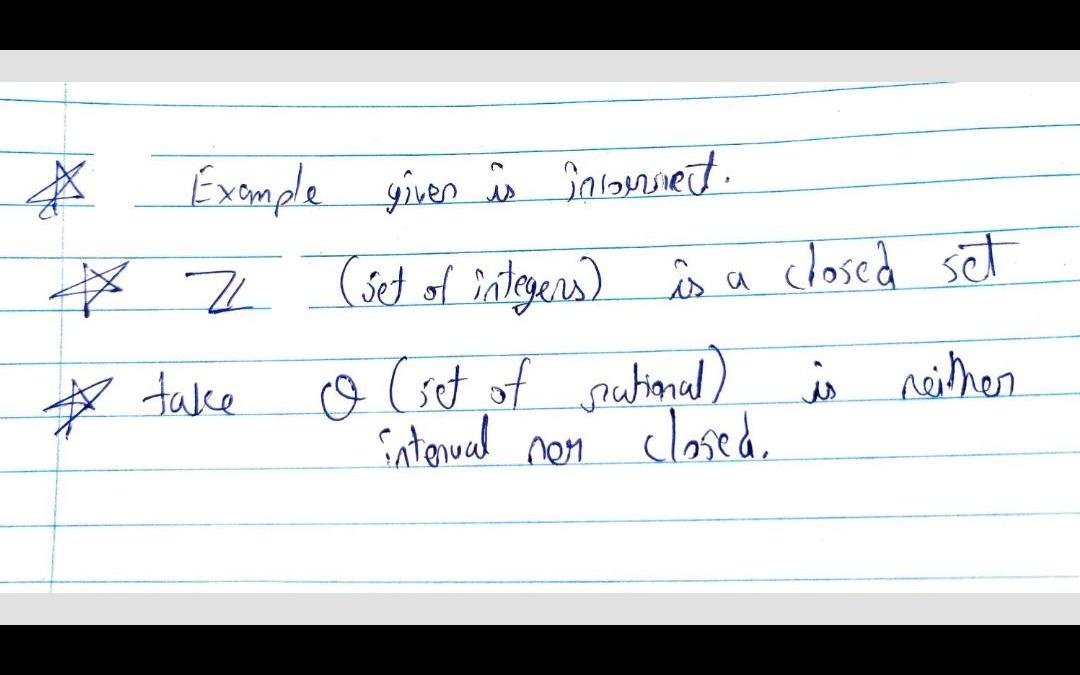 ☆ Example given is incorrect.
☆ ℤ (set of integers) is a closed set
☆ take Q (set of rational) is neither
interval nor closed.